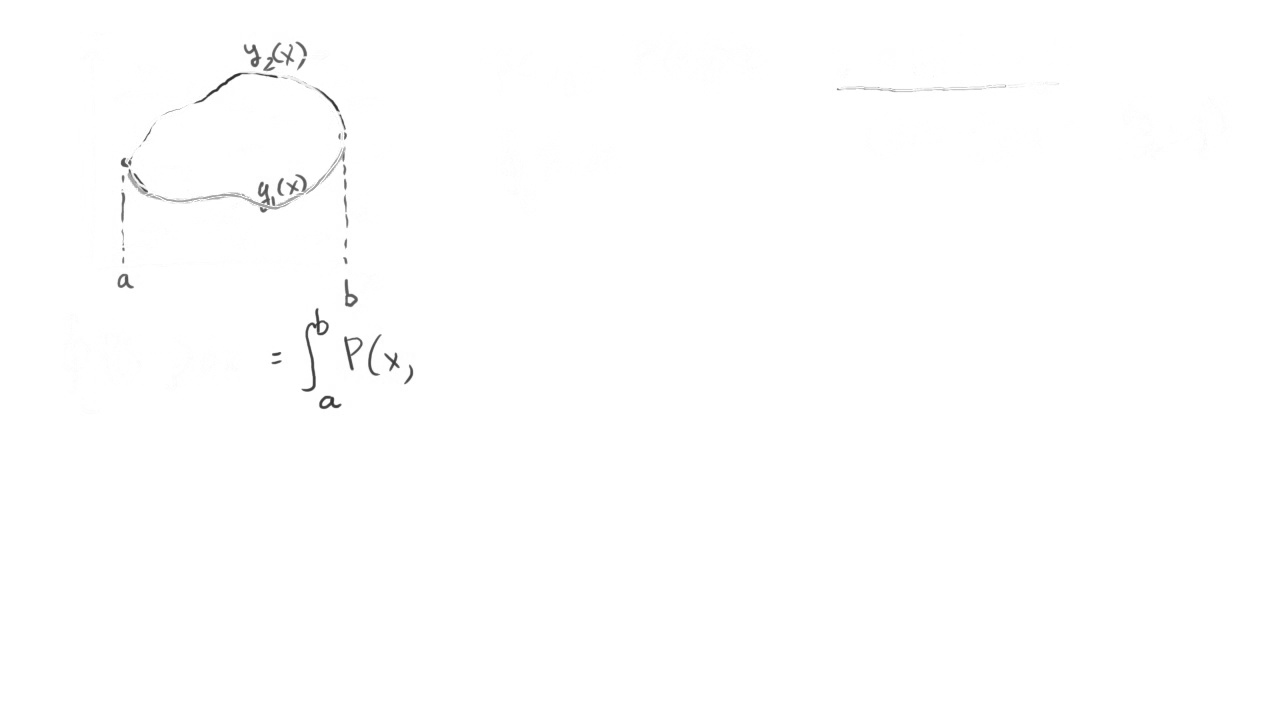 y₂(x)
y₁(x)
a
b
= ∫ₐᵇ P(x,